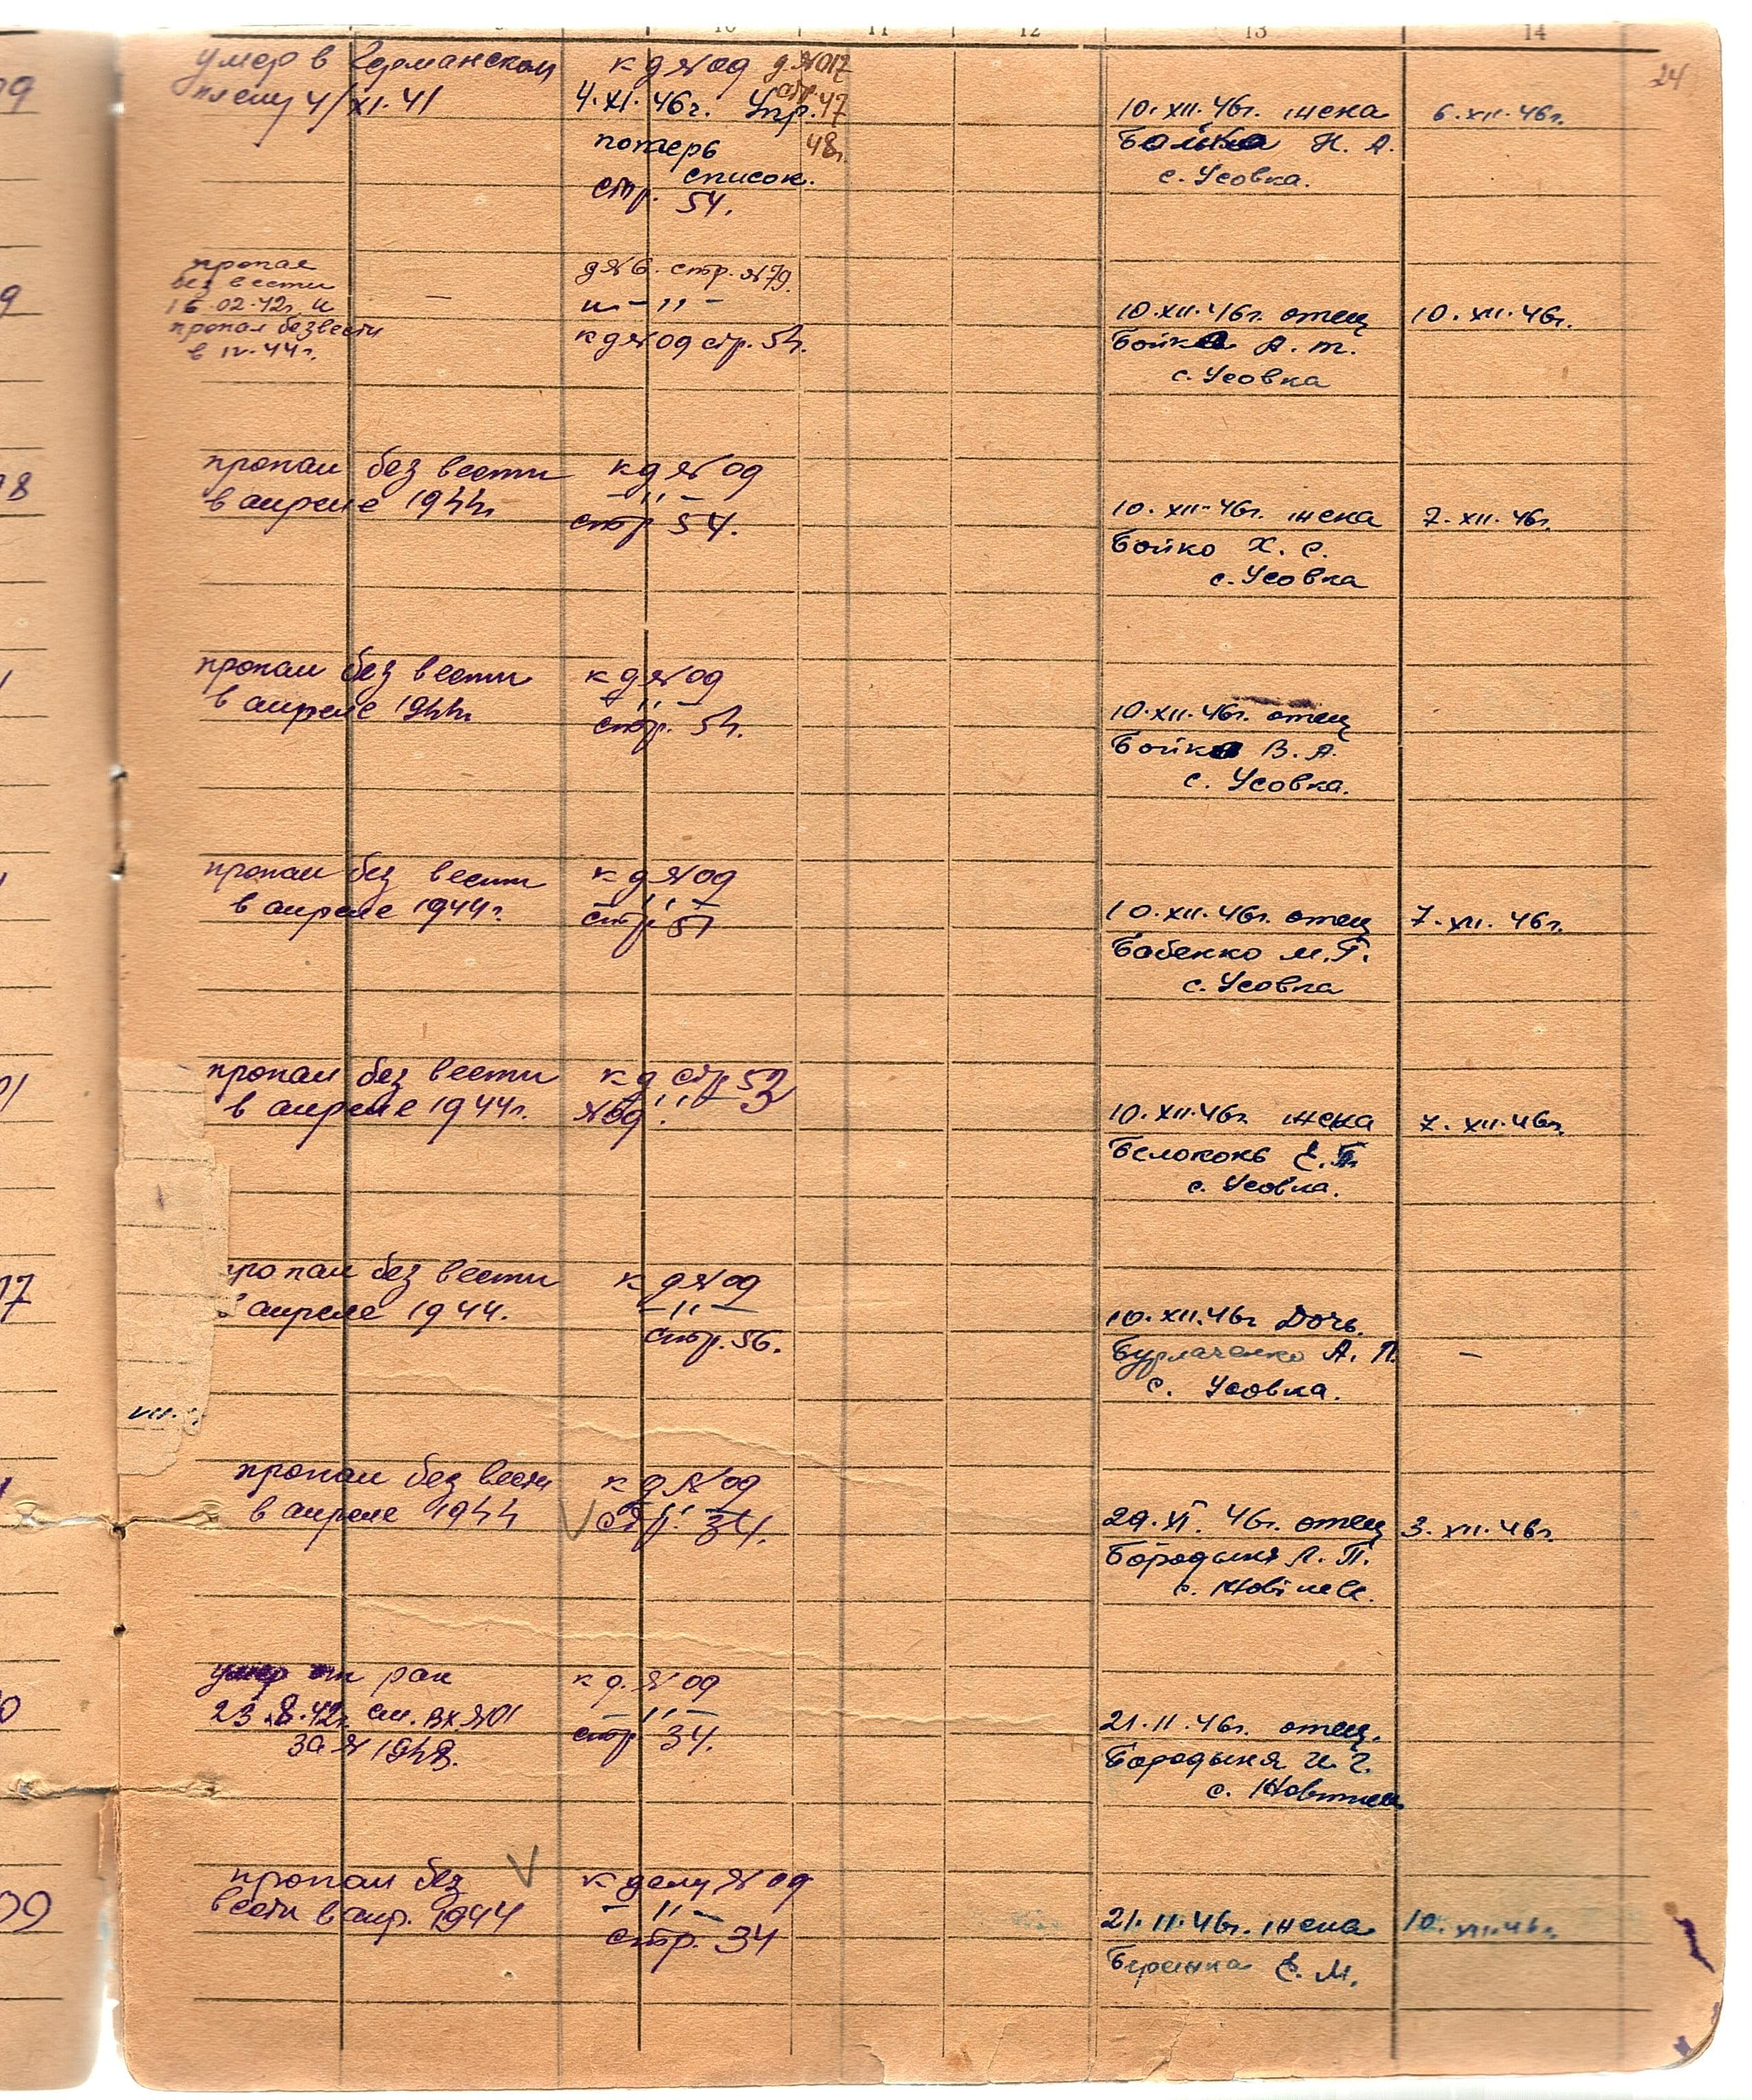 10 11 12 13 14
24
9
умер в Германском к д №09 д №017
плену 4/XI.41 4.XI.46г. Упр. стр. 47
потерь 48г.
список.
стр. 54.
10.XII.46г. жена 6.XII.46г.
Бойко Н. А.
с. Усовка.
9
пропал д№6. стр. №79.
без вести
16.02.42г. и — и – " –
пропал безвести к д №09 стр. 54.
в IV.44г.
10.XII.46г. отец 10.XII.46г.
Бойко А. Т.
с. Усовка
8
пропал без вести к д №09
в апреле 1944г – " –
стр 54.
10.XII.46г. жена 7.XII.46г.
Бойко Х. С.
с. Усовка
пропал без вести к д №09
в апреле 1944г – " –
стр. 54.
10.XII.46г. отец
Бойко В. А.
с. Усовка.
пропал без вести к д №09
в апреле 1944г. – " –
стр 51
10.XII.46г. отец 7.XII.46г.
Бабенко М. Г.
с. Усовка
01
пропал без вести к д стр
в апреле 1944г. №09. – " –
10.XII.46г жена 7.XII.46г.
Белоконь Е. П.
с. Усовка.
17
пропал без вести к д №09
в апреле 1944. – " –
стр. 56.
10.XII.46г Дочь.
Бурлаченко А. П. —
с. Усовка.
VII.
пропал без вести к д №09
в апреле 1944 V – " –
стр. 34.
29.XI. 46г. отец 3.XII.46г
Бородыня Л. П.
0
умер от ран к д. №09
23.8.42г. см. вх. №01 – " –
стр 34.
21.11.46г. отец.
Бородыня И. Г.
09
пропал без V к делу №09
вести в апр. 1944 – " –
стр. 34
21.11.46г. жена 10.XII.46г.
Е. М.